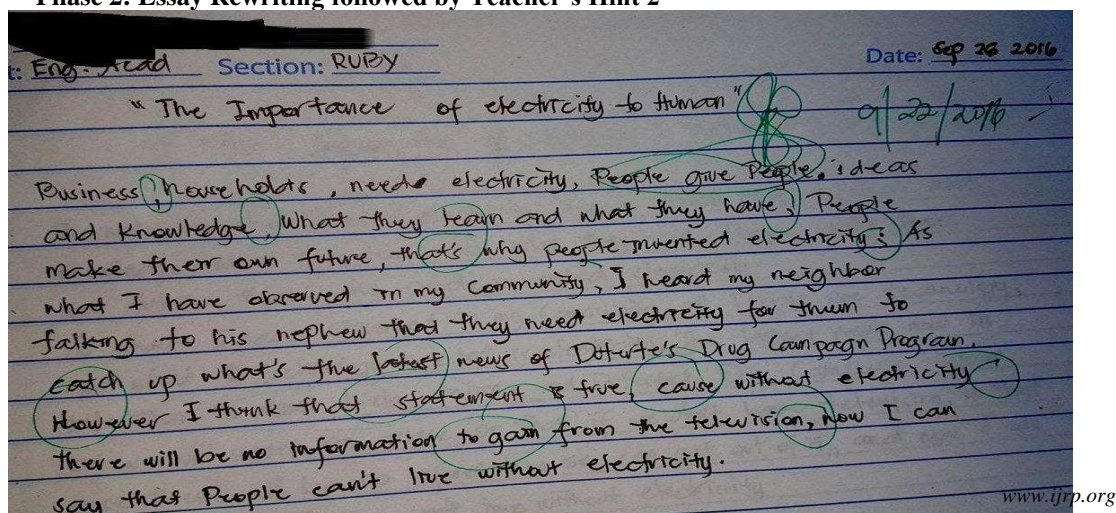 Phase 2: Essay Rewriting followed by Teacher's Hint 2
t: Eng. Acad Section: RUBY Date: Sep 26 2016
"The Importance of electricity to Human" 9/22/2016
Business, households, needs electricity, People give People. ideas
and knowledge, What they learn and what they have; People
make their own future, that's why people invented electricity; As
what I have observed in my community, I heard my neighbor
talking to his nephew that they need electricity for them to
catch up what's the latest news of Duterte's Drug Campaign Program.
However I think that statement is true, cause without electricity
there will be no information to gain from the television, now I can
say that People can't live without electricity.
www.ijrp.org